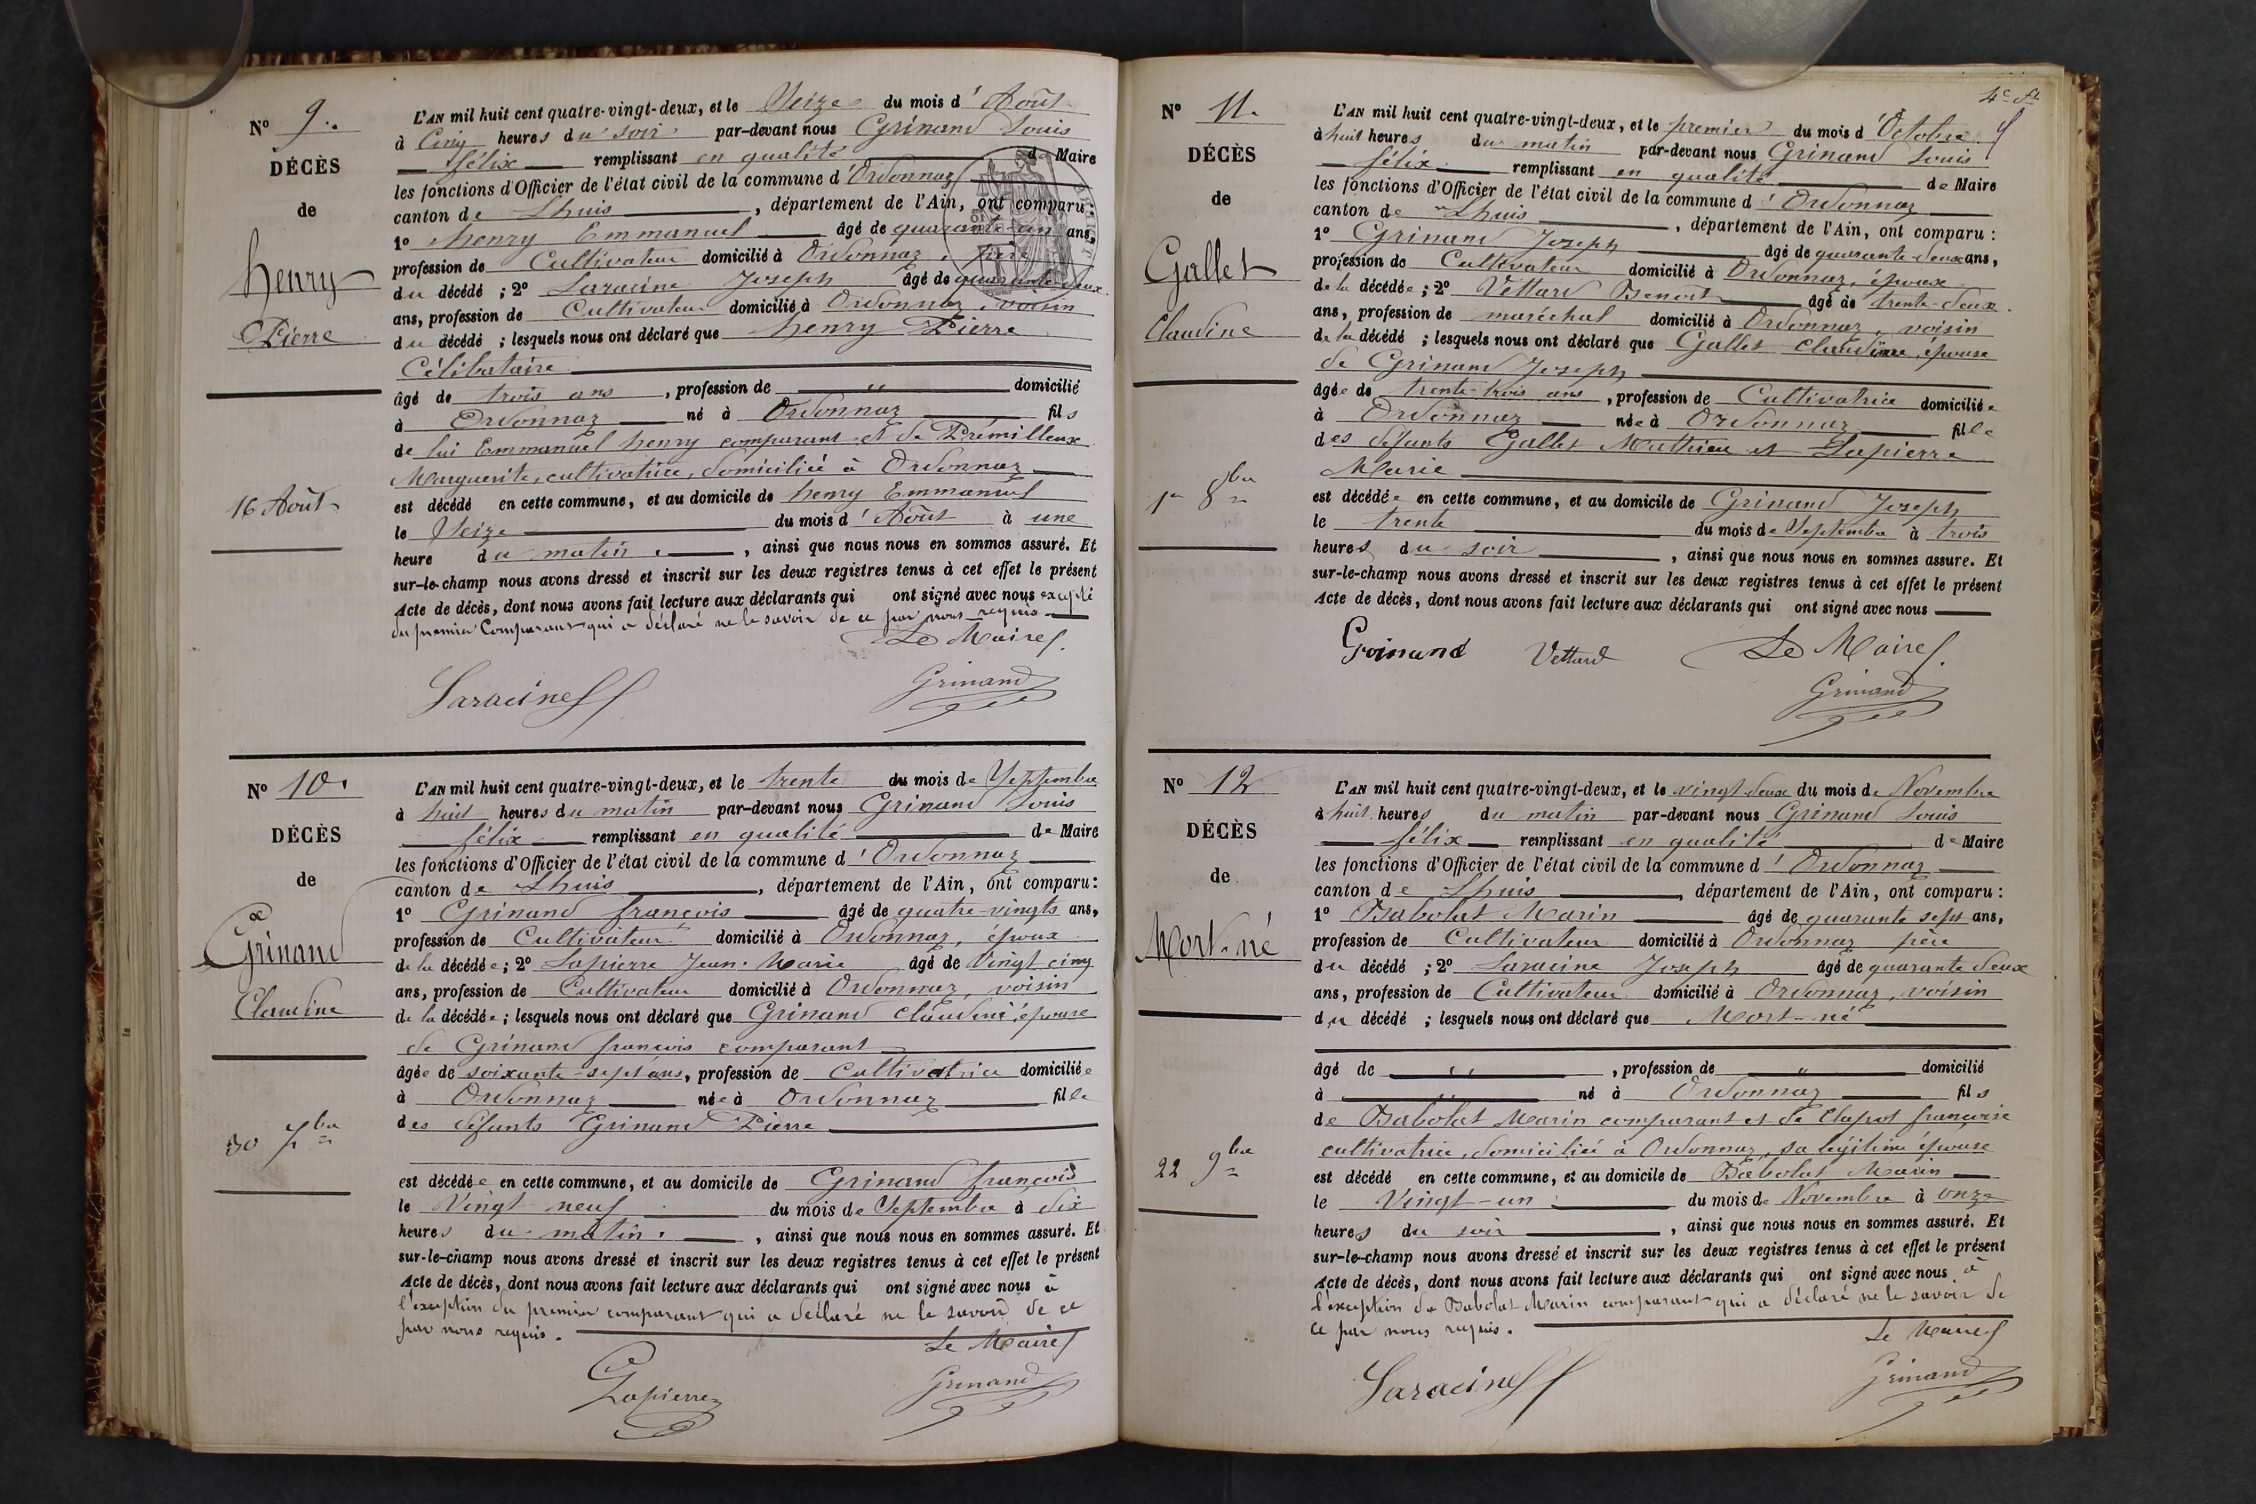 N° 9.
DÉCÈS
de
henry
Pierre
16 Août
L'AN mil huit cent quatre-vingt-deux, et le Seize du mois d'Août
à Cinq heures du soir par-devant nous Grinand Louis
félix remplissant en qualité de Maire
les fonctions d'Officier de l'état civil de la commune d'Ordonnaz
canton de Lhuis, département de l'Ain, ont comparu :
1° henry Emmanuel âgé de quarante-un ans,
profession de Cultivateur domicilié à Ordonnaz, père
du décédé ; 2° Saracine Joseph âgé de quarante-deux
ans, profession de Cultivateur domicilié à Ordonnaz, voisin
du décédé ; lesquels nous ont déclaré que henry Pierre
Célibataire
âgé de trois ans, profession de " domicilié
à Ordonnaz né à Ordonnaz fils
de lui Emmanuel henry comparant et de Prémilleux
Marguerite, cultivatrice, domiciliée à Ordonnaz
est décédé en cette commune, et au domicile de henry Emmanuel
le Seize du mois d'Août à une
heure du matin, ainsi que nous nous en sommes assuré. Et
sur-le-champ nous avons dressé et inscrit sur les deux registres tenus à cet effet le présent
Acte de décès, dont nous avons fait lecture aux déclarants qui ont signé avec nous excepté
du premier Comparant qui a déclaré ne le savoir de ce par nous requis
Le Maire
Saracine
Grinand
N° 10.
DÉCÈS
de
Grinand
Claudine
30 7bre
L'AN mil huit cent quatre-vingt-deux, et le trente du mois de Septembre
à huit heures du matin par-devant nous Grinand Louis
félix remplissant en qualité de Maire
les fonctions d'Officier de l'état civil de la commune d'Ordonnaz
canton de Lhuis, département de l'Ain, ont comparu :
1° Grinand françois âgé de quatre-vingts ans,
profession de Cultivateur domicilié à Ordonnaz, époux
de la décédée ; 2° Lapierre Jean-Marie âgé de Vingt cinq
ans, profession de Cultivateur domicilié à Ordonnaz, voisin
de la décédée ; lesquels nous ont déclaré que Grinand Claudine, épouse
de Grinand françois comparant
âgée de soixante-sept ans, profession de Cultivatrice domiciliée
à Ordonnaz née à Ordonnaz fille
des défunts Grinand Pierre
est décédée en cette commune, et au domicile de Grinand françois
le Vingt-neuf du mois de Septembre à dix
heures du matin, ainsi que nous nous en sommes assuré. Et
sur-le-champ nous avons dressé et inscrit sur les deux registres tenus à cet effet le présent
Acte de décès, dont nous avons fait lecture aux déclarants qui ont signé avec nous à
l'exception du premier comparant qui a déclaré ne le savoir de ce
par nous requis.
Le Maire
Lapierre
Grinand
4e ft
N° 11.
DÉCÈS
de
Gallet
Claudine
1er 8bre
L'AN mil huit cent quatre-vingt-deux, et le premier du mois d'Octobre
à huit heures du matin par-devant nous Grinand Louis
félix remplissant en qualité de Maire
les fonctions d'Officier de l'état civil de la commune d'Ordonnaz
canton de Lhuis, département de l'Ain, ont comparu :
1° Grinand Joseph âgé de quarante-deux ans,
profession de Cultivateur domicilié à Ordonnaz, époux
de la décédée ; 2° Vettard Benoit âgé de trente-deux
ans, profession de maréchal domicilié à Ordonnaz, voisin
de la décédé ; lesquels nous ont déclaré que Gallet Claudine, épouse
de Grinand Joseph
âgée de trente-trois ans, profession de Cultivatrice domiciliée
à Ordonnaz née à Ordonnaz fille
des défunts Gallet Mathieu et Lapierre
Marie
est décédée en cette commune, et au domicile de Grinand Joseph
le trente du mois de Septembre à trois
heures du soir, ainsi que nous nous en sommes assuré. Et
sur-le-champ nous avons dressé et inscrit sur les deux registres tenus à cet effet le présent
Acte de décès, dont nous avons fait lecture aux déclarants qui ont signé avec nous
Grinand Vettard Le Maire
Grinand
N° 12
DÉCÈS
de
Mort-né
22 9bre
L'AN mil huit cent quatre-vingt-deux, et le vingt-deux du mois de Novembre
à huit heures du matin par-devant nous Grinand Louis
félix remplissant en qualité de Maire
les fonctions d'Officier de l'état civil de la commune d'Ordonnaz
canton de Lhuis, département de l'Ain, ont comparu :
1° Babolat Marin âgé de quarante sept ans,
profession de Cultivateur domicilié à Ordonnaz père
du décédé ; 2° Saracine Joseph âgé de quarante deux
ans, profession de Cultivateur domicilié à Ordonnaz, voisin
du décédé ; lesquels nous ont déclaré que Mort-né
âgé de ", profession de " domicilié
à né à Ordonnaz fils
de Babolat Marin comparant et de Clapot françoise
cultivatrice, domiciliée à Ordonnaz, sa légitime épouse
est décédé en cette commune, et au domicile de Babolat Marin
le Vingt-un du mois de Novembre à onze
heures du soir, ainsi que nous nous en sommes assuré. Et
sur-le-champ nous avons dressé et inscrit sur les deux registres tenus à cet effet le présent
Acte de décès, dont nous avons fait lecture aux déclarants qui ont signé avec nous à
l'exception de Babolat Marin comparant qui a déclaré ne le savoir de
ce par nous requis.
Le Maire
Saracine
Grinand